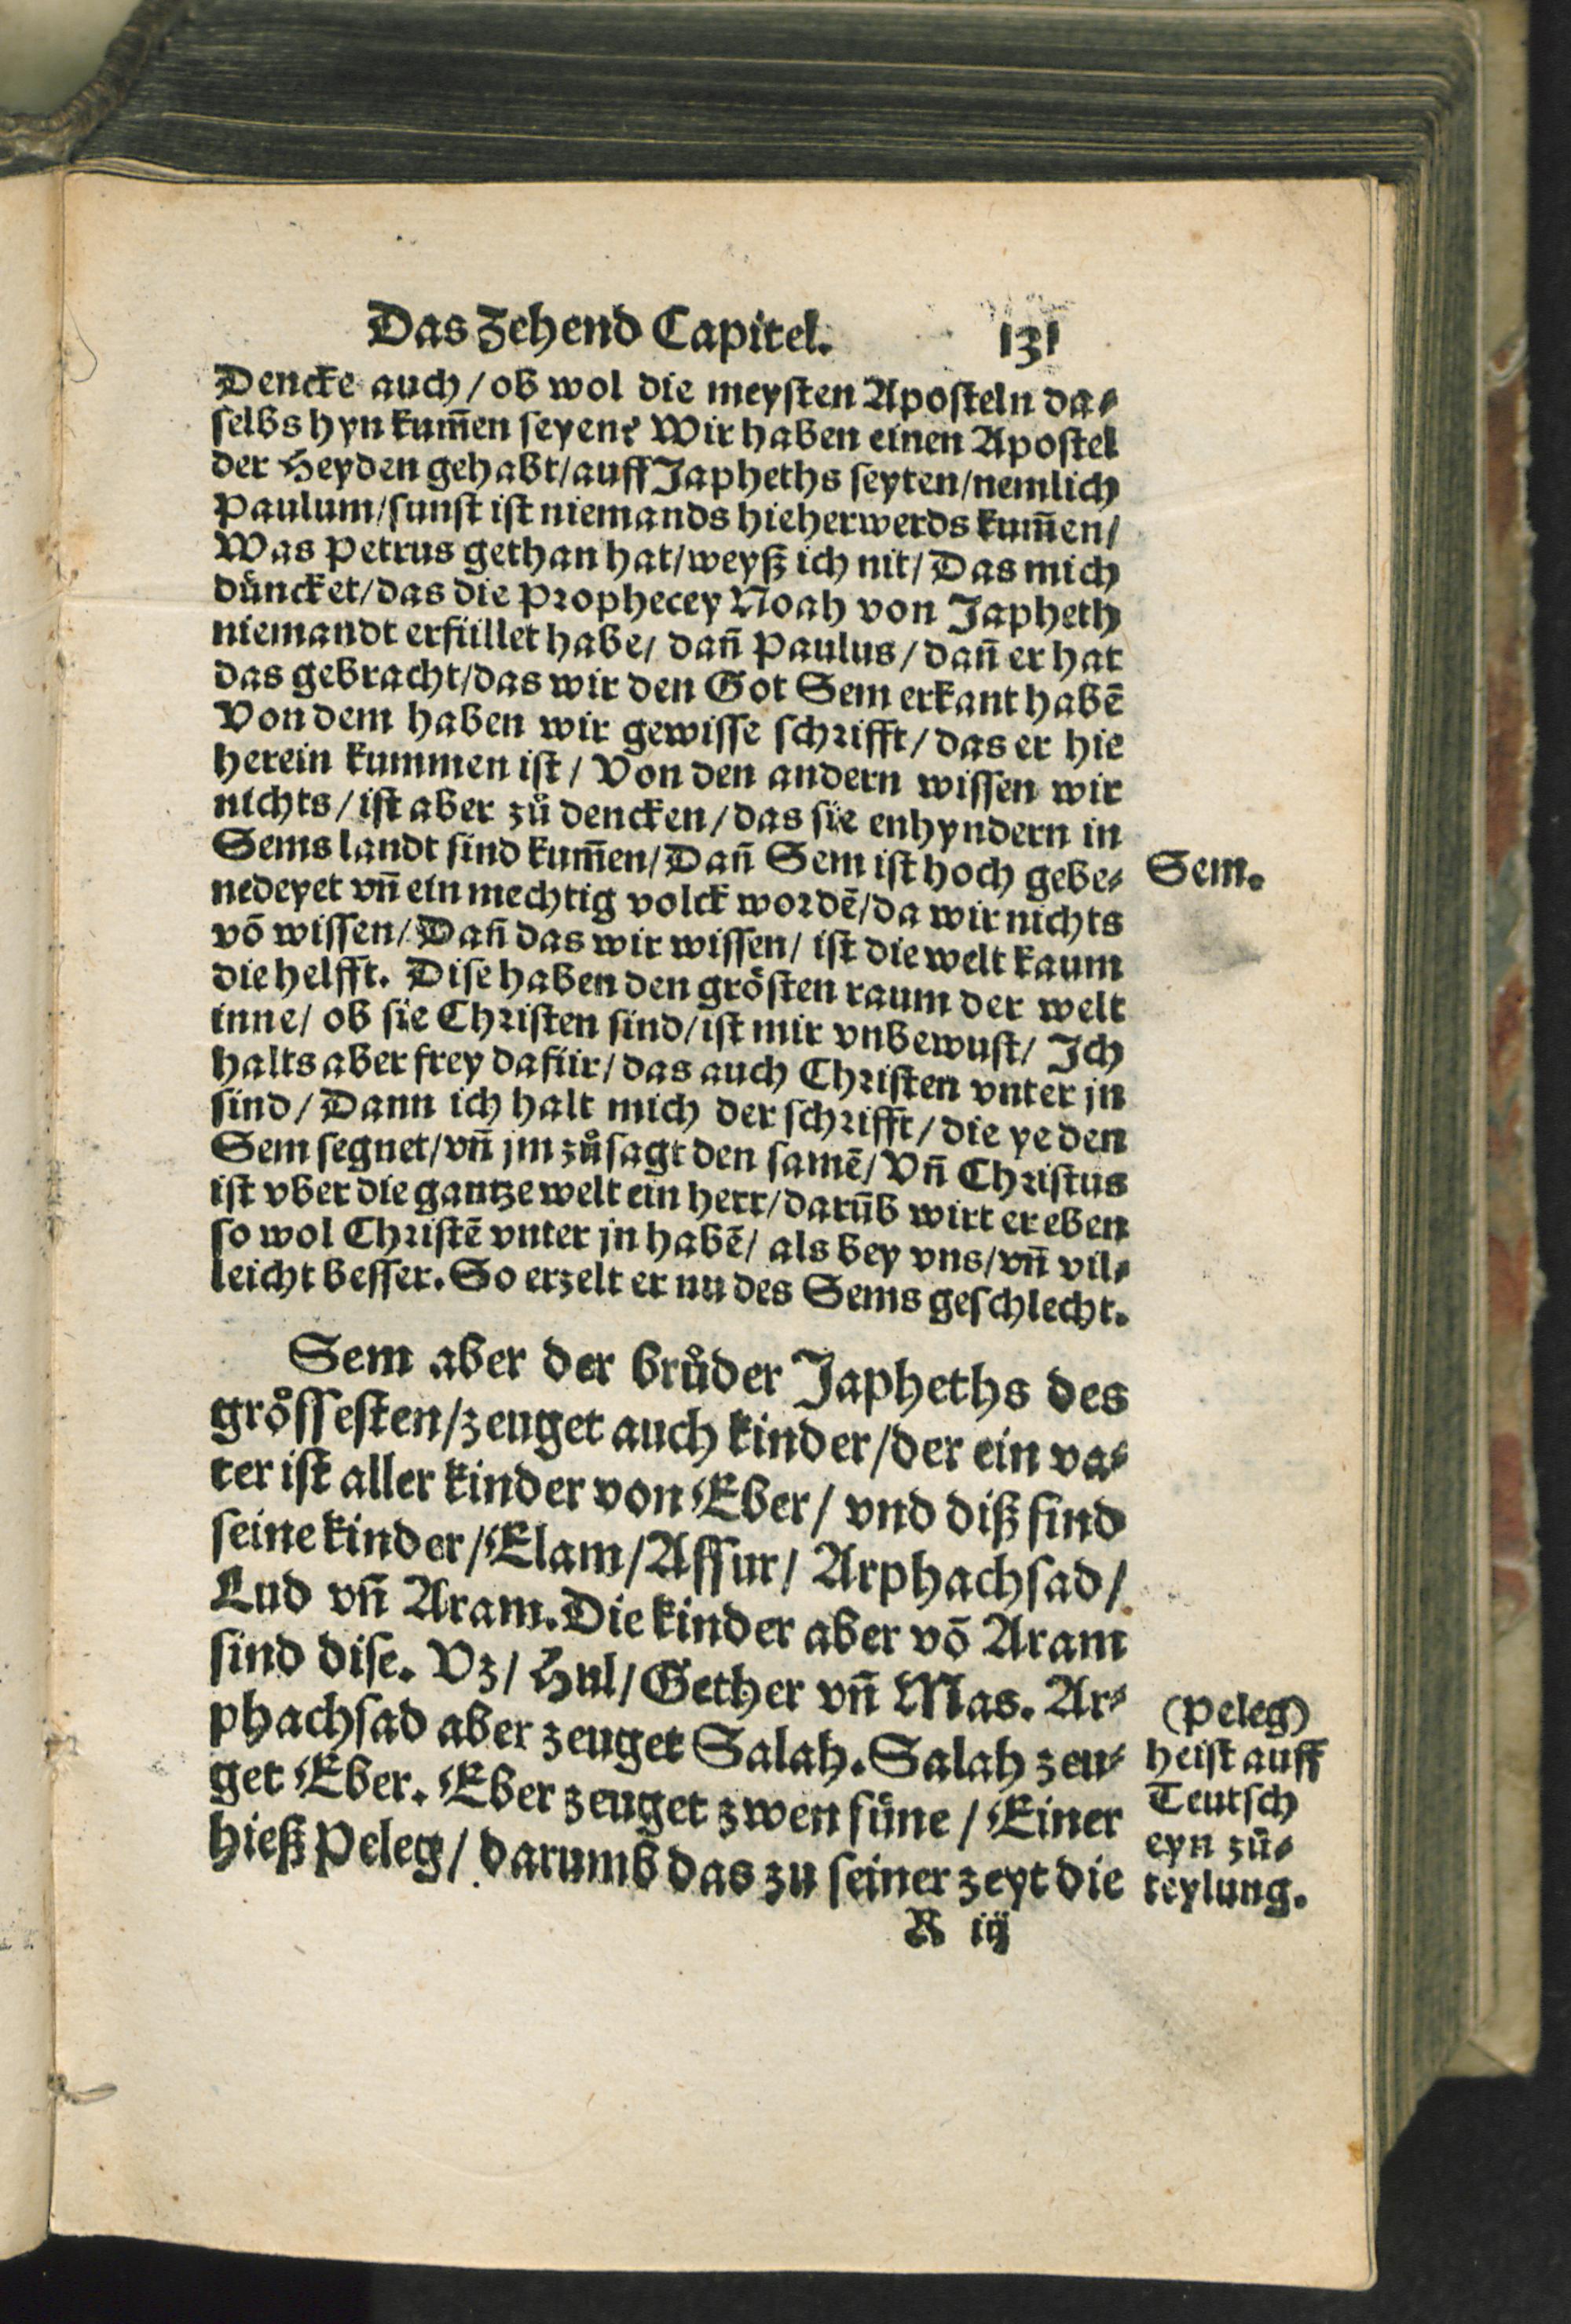 Das Zehend Capitel. 131
Dencke auch/ ob wol die meysten Aposteln da⸗
selbs hyn kum̄en seyen? Wir haben einen Apostel
der Heyden gehabt/ auff Japheths seyten/ nemlich
Paulum/ sunst ist niemands hieherwerds kum̄en/
Was Petrus gethan hat/ weyß ich nit/ Das mich
duͤncket/ das die Prophecey Noah von Japheth
niemandt erfüllet habe/ dañ Paulus/ dañ er hat
das gebracht/ das wir den Got Sem erkant habē
Von dem haben wir gewisse schrifft/ das er hie
herein kummen ist/ Von den andern wissen wir
nichts/ ist aber zů dencken/ das sie enhyndern in
Sems landt sind kum̄en/ Dañ Sem ist hoch gebe⸗
Sem.
nedeyet vñ ein mechtig volck wordē/ da wir nichts
vō wissen/ Dañ das wir wissen/ ist die welt kaum
die helfft. Dise haben den groͤsten raum der welt
inne/ ob sie Christen sind/ ist mir vnbewust/ Ich
halts aber frey dafür/ das auch Christen vnter jn
sind/ Dann ich halt mich der schrifft/ die ye den
Sem segnet/ vñ jm zůsagt den samē/ Vñ Christus
ist vber die gantze welt ein herr/ darūb wirt er eben
so wol Christē vnter jn habē/ als bey vns/ vñ vil⸗
leicht besser. So erzelt er nu des Sems geschlecht.
Sem aber der brůder Japheths des
groͤssesten/ zeuget auch kinder/ der ein va⸗
ter ist aller kinder von Eber/ vnd diß sind
seine kinder/ Elam/ Assur/ Arphachsad/
Lud vñ Aram. Die kinder aber vō Aram
sind dise. Vz/ Hul/ Gether vñ Mas. Ar⸗
phachsad aber zeuget Salah. Salah zeu⸗
get Eber. Eber zeuget zwen süne/ Einer
hieß Peleg/ darumb das zu seiner zeyt die
(Peleg)
heist auff
Teutsch
eyn zů⸗
teylung.
R iij